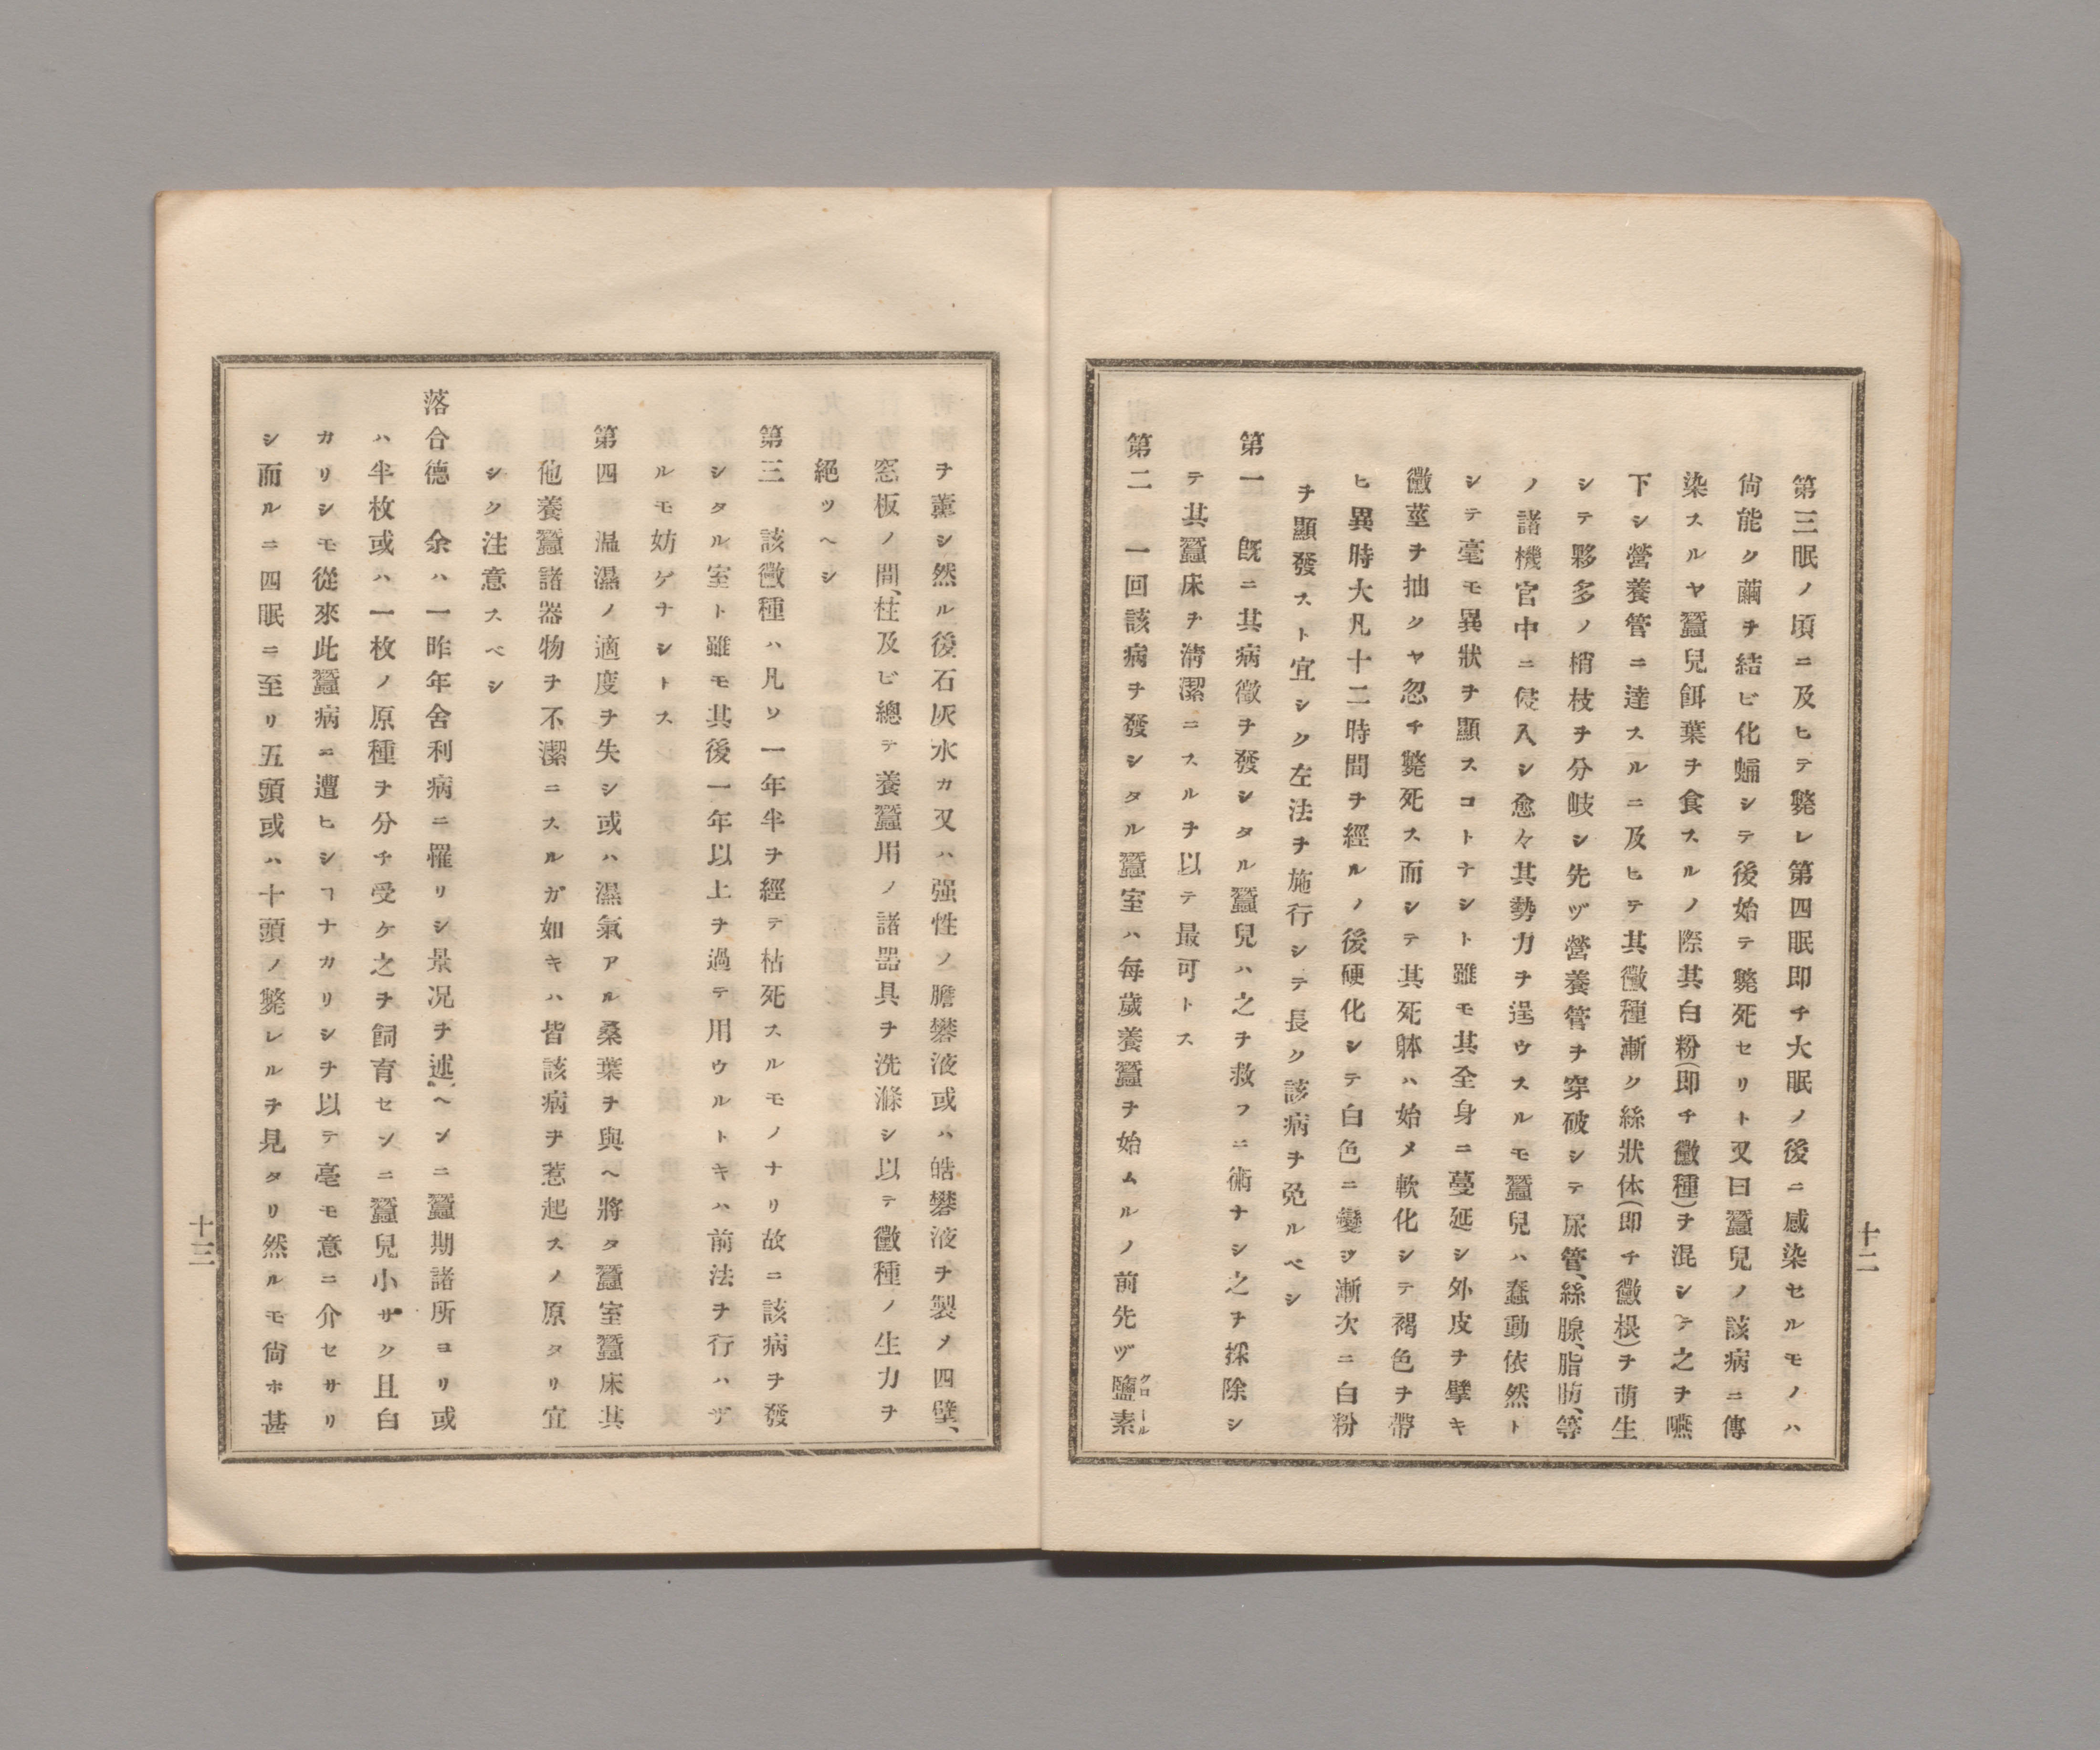 第三眠ノ頃ニ及ヒテ斃レ第四眠即チ大眠ノ後ニ感染セルモノハ
尙能ク繭ヲ結ビ化蛹シテ後始テ斃死セリト又曰蠶兒ノ該病ニ傳
染スルヤ蠶兒餌葉ヲ食スルノ際其白粉(即チ黴種)ヲ混シテ之ヲ嚥
下シ營養管ニ達スルニ及ヒテ其黴種漸ク絲狀体(即チ黴根)ヲ萌生
シテ夥多ノ梢枝ヲ分岐シ先ヅ營養管ヲ穿破シテ尿管、絲腺、脂肪、等
ノ諸機官中ニ侵入シ愈々其勢力ヲ逞ウスルモ蠶兒ハ蠢動依然ト
シテ毫モ異狀ヲ顯スコトナシト雖モ其全身ニ蔓延シ外皮ヲ擘キ
黴莖ヲ抽クヤ忽チ斃死ス而シテ其死躰ハ始メ軟化シテ褐色ヲ帶
ヒ異時大凡十二時間ヲ經ルノ後硬化シテ白色ニ變ヲ漸次ニ白粉
ヲ顯發スト宜シク左法ヲ施行シテ長ク該病ヲ免ルベシ
第一 旣ニ其病徵ヲ發シタル蠶兒ハ之ヲ救フニ術ナシ之ヲ採除シ
テ其蠶床ヲ淸潔ニスルヲ以テ最可トス
第二 一回該病ヲ發シタル蠶室ハ每歲養蠶ヲ始ムルノ前先ヅ鹽素クロール
十二
ヲ薰シ然ル後石灰水カ又ハ强性ノ膽礬液或ハ皓礬液ヲ製メ四壁、
窓板ノ間、柱及ビ總テ養蠶用ノ諸器具ヲ洗滌シ以テ黴種ノ生力ヲ
絕ツヘシ
第三 該黴種ハ凡ソ一年半ヲ經テ枯死スルモノナリ故ニ該病ヲ發
シタル室ト雖モ其後一年以上ヲ過テ用ウルトキハ前法ヲ行ハザ
ルモ妨ゲナシトス
第四 温濕ノ適度ヲ失シ或ハ濕氣アル桑葉ヲ與ヘ將タ蠶室蠶床其
他養蠶諸器物ヲ不潔ニスルガ如キハ皆該病ヲ惹起スノ原タリ宜
シク注意スベシ
落合德 余ハ一昨年舍利病ニ罹リシ景況ヲ述ヘンニ蠶期諸所ヨリ或
ハ半枚或ハ一枚ノ原種ヲ分チ受ケ之ヲ飼育センニ蠶兒小サク且白
カリシモ從來此蠶病ニ遭ヒシヿナカリシヲ以テ毫モ意ニ介セサリ
シ而ルニ四眠ニ至リ五頭或ハ十頭ノ斃レルヲ見タリ然ルモ尙ホ甚
十三